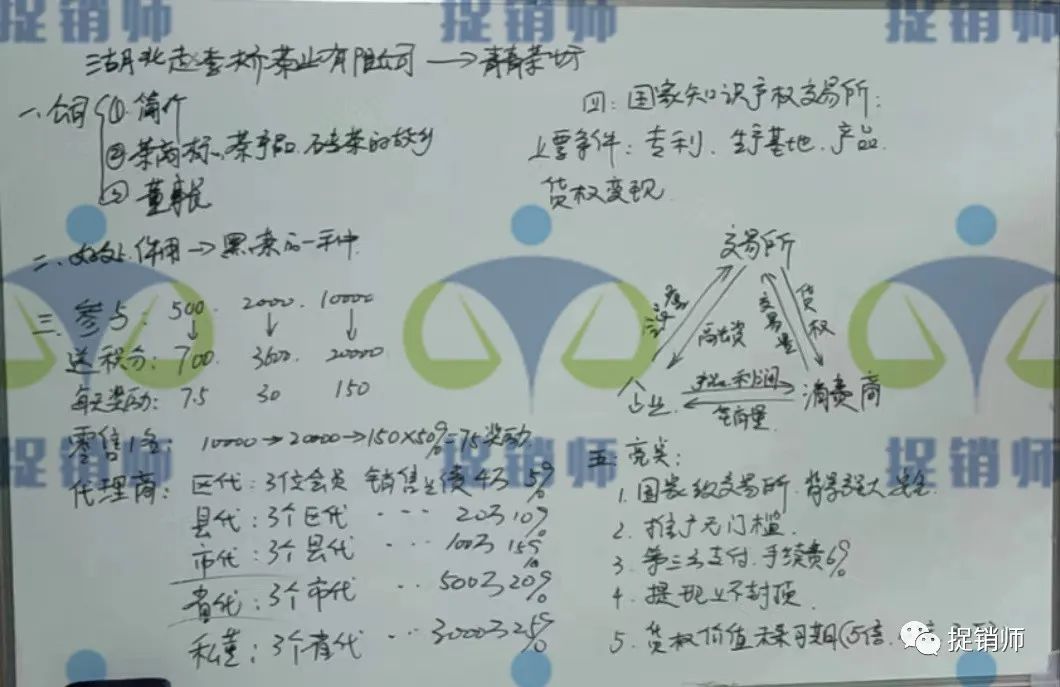 湖北赵李桥茶业有限公司 → 青青茶坊
一、公司 ① 简介
② 茶商标、茶产品、砖茶的故乡
③ 董事长
二、好处、作用 → 黑茶的一种
三、参与: 500 2000 10000
送积分: 700 3600 20000
每天奖励: 7.5 30 150
零售1名: 10000→20000→150×50%=75奖励
代理商: 区代: 3位会员 销售业绩4万 5%
县代: 3个区代 ··· 20万 10%
市代: 3个县代 ··· 100万 15%
省代: 3个市代 ·· 500万 20%
私董: 3个省代 ··· 3000万 25%
四: 国家知识产权交易所:
上要条件: 专利、生产基地、产品
货权变现
交易所
融资
交易量
货权
企业
利润
销量
消费商
五: 亮点:
1. 国家级交易所, 背景强大
2. 推广无门槛.
3. 第三方支付, 手续费6%
4. 提现上不封顶.
5. 货权价值未来可期(5倍
捉销师
捉销师
捉销师
捉销师
捉销师
捉销师
捉销师